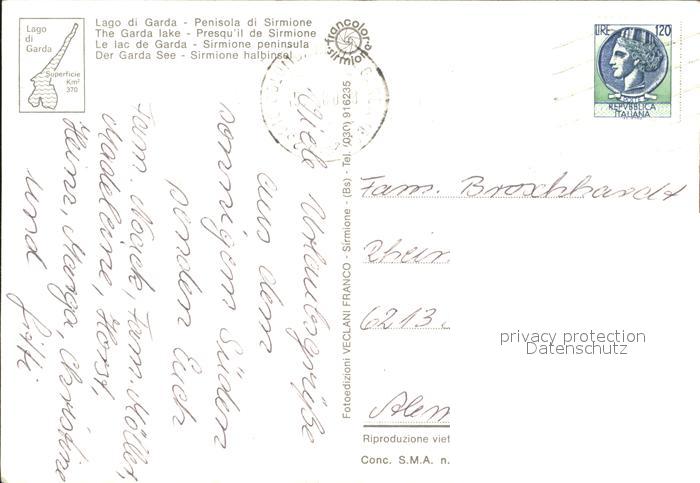 Lago
di
Garda
Superficie
Km²
370
Lago di Garda - Penisola di Sirmione
The Garda lake - Presqu'il de Sirmione
Le lac de Garda - Sirmione peninsula
Der Garda See - Sirmione halbinsel
francolor
sirmione
LIRE 120
POSTE
REPVBBLICA
ITALIANA
Viele Urlaubsgrüße
aus dem
sonnigen Süden
senden Euch
Fam. Fam. Möller,
Madeleine, Horst,
Heinz, Marga, Christine
und Gitti
Fotoedizioni VECLANI FRANCO - Sirmione - (Bs) - Tel. (030) 916235
Fam. Broschhardt
Rhein
6213
Alem
privacy protection
Datenschutz
Riproduzione viet
Conc. S.M.A. n.